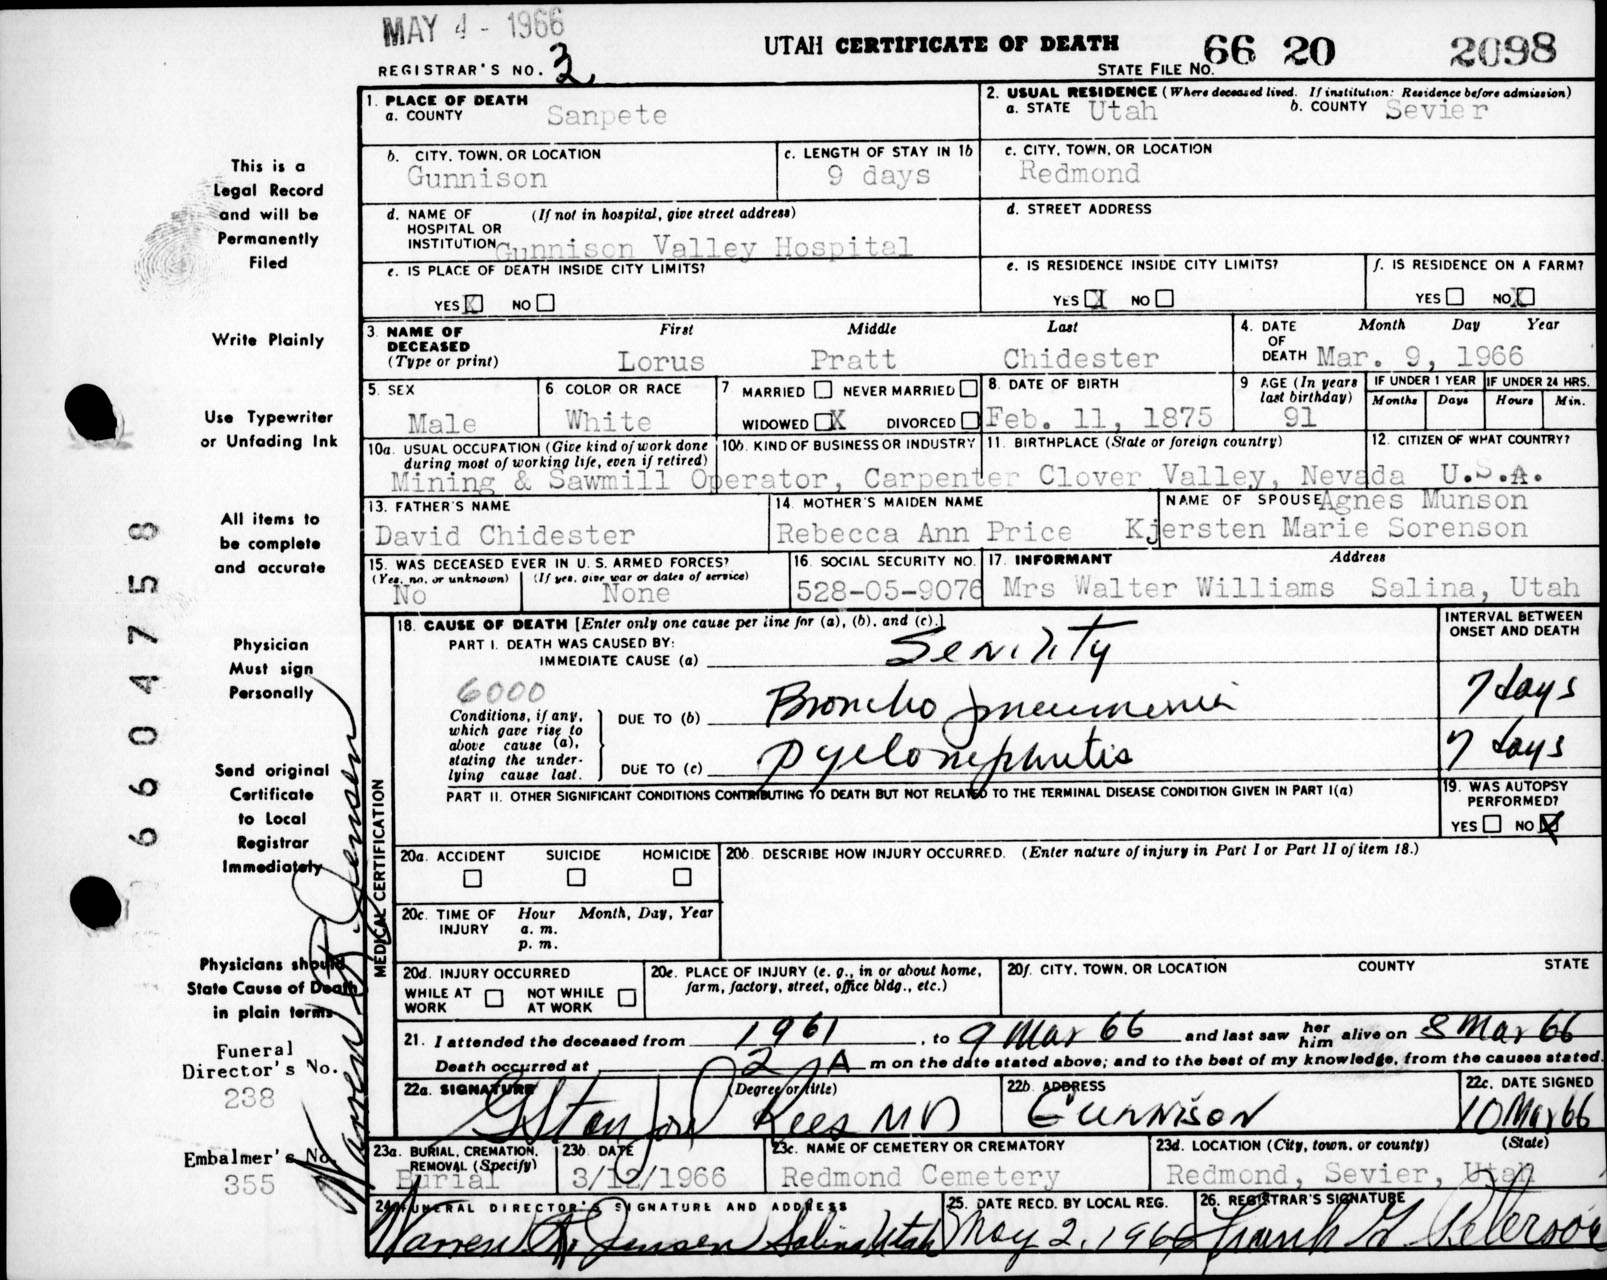 MAY 4 - 1966
UTAH CERTIFICATE OF DEATH
66 20 2098
REGISTRAR'S NO. 3
STATE FILE NO.
1. PLACE OF DEATH
a. COUNTY Sanpete
2. USUAL RESIDENCE (Where deceased lived. If institution: Residence before admission)
a. STATE Utah b. COUNTY Sevier
b. CITY, TOWN, OR LOCATION
Gunnison
c. LENGTH OF STAY IN 1b
9 days
c. CITY, TOWN, OR LOCATION
Redmond
d. NAME OF HOSPITAL OR INSTITUTION (If not in hospital, give street address)
Gunnison Valley Hospital
d. STREET ADDRESS
e. IS PLACE OF DEATH INSIDE CITY LIMITS?
YES X NO
e. IS RESIDENCE INSIDE CITY LIMITS?
YES X NO
f. IS RESIDENCE ON A FARM?
YES NO X
3. NAME OF DECEASED (Type or print)
First Middle Last
Lorus Pratt Chidester
4. DATE OF DEATH
Month Day Year
Mar. 9, 1966
5. SEX
Male
6 COLOR OR RACE
White
7 MARRIED NEVER MARRIED
WIDOWED X DIVORCED
8. DATE OF BIRTH
Feb. 11, 1875
9 AGE (In years last birthday)
91
IF UNDER 1 YEAR
Months Days
IF UNDER 24 HRS.
Hours Min.
10a. USUAL OCCUPATION (Give kind of work done during most of working life, even if retired)
10b. KIND OF BUSINESS OR INDUSTRY
Mining & Sawmill Operator, Carpenter
11. BIRTHPLACE (State or foreign country)
Clover Valley, Nevada
12. CITIZEN OF WHAT COUNTRY?
U.S.A.
13. FATHER'S NAME
David Chidester
14. MOTHER'S MAIDEN NAME
Rebecca Ann Price
NAME OF SPOUSE Agnes Munson
Kjersten Marie Sorenson
15. WAS DECEASED EVER IN U.S. ARMED FORCES?
(Yes, no, or unknown) (If yes, give war or dates of service)
No None
16. SOCIAL SECURITY NO.
528-05-9076
17. INFORMANT Address
Mrs Walter Williams Salina, Utah
MEDICAL CERTIFICATION
18. CAUSE OF DEATH [Enter only one cause per line for (a), (b), and (c).]
INTERVAL BETWEEN ONSET AND DEATH
PART I. DEATH WAS CAUSED BY:
IMMEDIATE CAUSE (a) Senility
6000
Conditions, if any, which gave rise to above cause (a), stating the underlying cause last.
DUE TO (b) Broncho pneumonia 7 days
DUE TO (c) pyelonephritis 7 days
PART II. OTHER SIGNIFICANT CONDITIONS CONTRIBUTING TO DEATH BUT NOT RELATED TO THE TERMINAL DISEASE CONDITION GIVEN IN PART I(a)
19. WAS AUTOPSY PERFORMED?
YES NO X
20a. ACCIDENT SUICIDE HOMICIDE
20b. DESCRIBE HOW INJURY OCCURRED. (Enter nature of injury in Part I or Part II of item 18.)
20c. TIME OF INJURY Hour Month, Day, Year
a. m.
p. m.
20d. INJURY OCCURRED
WHILE AT WORK NOT WHILE AT WORK
20e. PLACE OF INJURY (e. g., in or about home, farm, factory, street, office bldg., etc.)
20f. CITY, TOWN, OR LOCATION COUNTY STATE
21. I attended the deceased from 1961, to 9 Mar 66 and last saw her him alive on 8 Mar 66
Death occurred at 2 A m on the date stated above; and to the best of my knowledge, from the causes stated.
22a. SIGNATURE (Degree or title)
G Stanford Rees MD
22b. ADDRESS
Gunnison
22c. DATE SIGNED
10 Mar 66
23a. BURIAL, CREMATION, REMOVAL (Specify)
Burial
23b. DATE
3/12/1966
23c. NAME OF CEMETERY OR CREMATORY
Redmond Cemetery
23d. LOCATION (City, town, or county) (State)
Redmond, Sevier, Utah
24. FUNERAL DIRECTOR'S SIGNATURE AND ADDRESS
Warren A. Jensen Salina Utah
25. DATE RECD. BY LOCAL REG.
May 2, 1966
26. REGISTRAR'S SIGNATURE
Frank G Peterson
This is a
Legal Record
and will be
Permanently
Filed
Write Plainly
Use Typewriter
or Unfading Ink
All items to
be complete
and accurate
Physician
Must sign
Personally
Send original
Certificate
to Local
Registrar
Immediately
Physicians should
State Cause of Death
in plain terms
Funeral
Director's No.
238
Embalmer's No.
355
6604758
Jensen